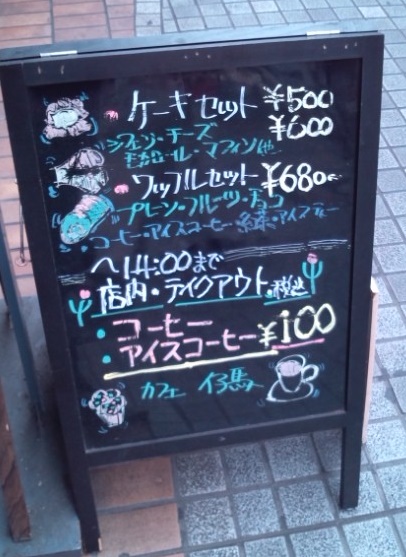 ケーキセット ¥500
¥600
シフォン・チーズ
ロール・マフィン他
ワッフルセット ¥680
プレーン・フルーツ・チョコ
・コーヒー・アイスコーヒー・紅茶・アイスティー
～14:00まで
店内・テイクアウト・税込
・コーヒー
・アイスコーヒー ¥100
カフェ 仔馬